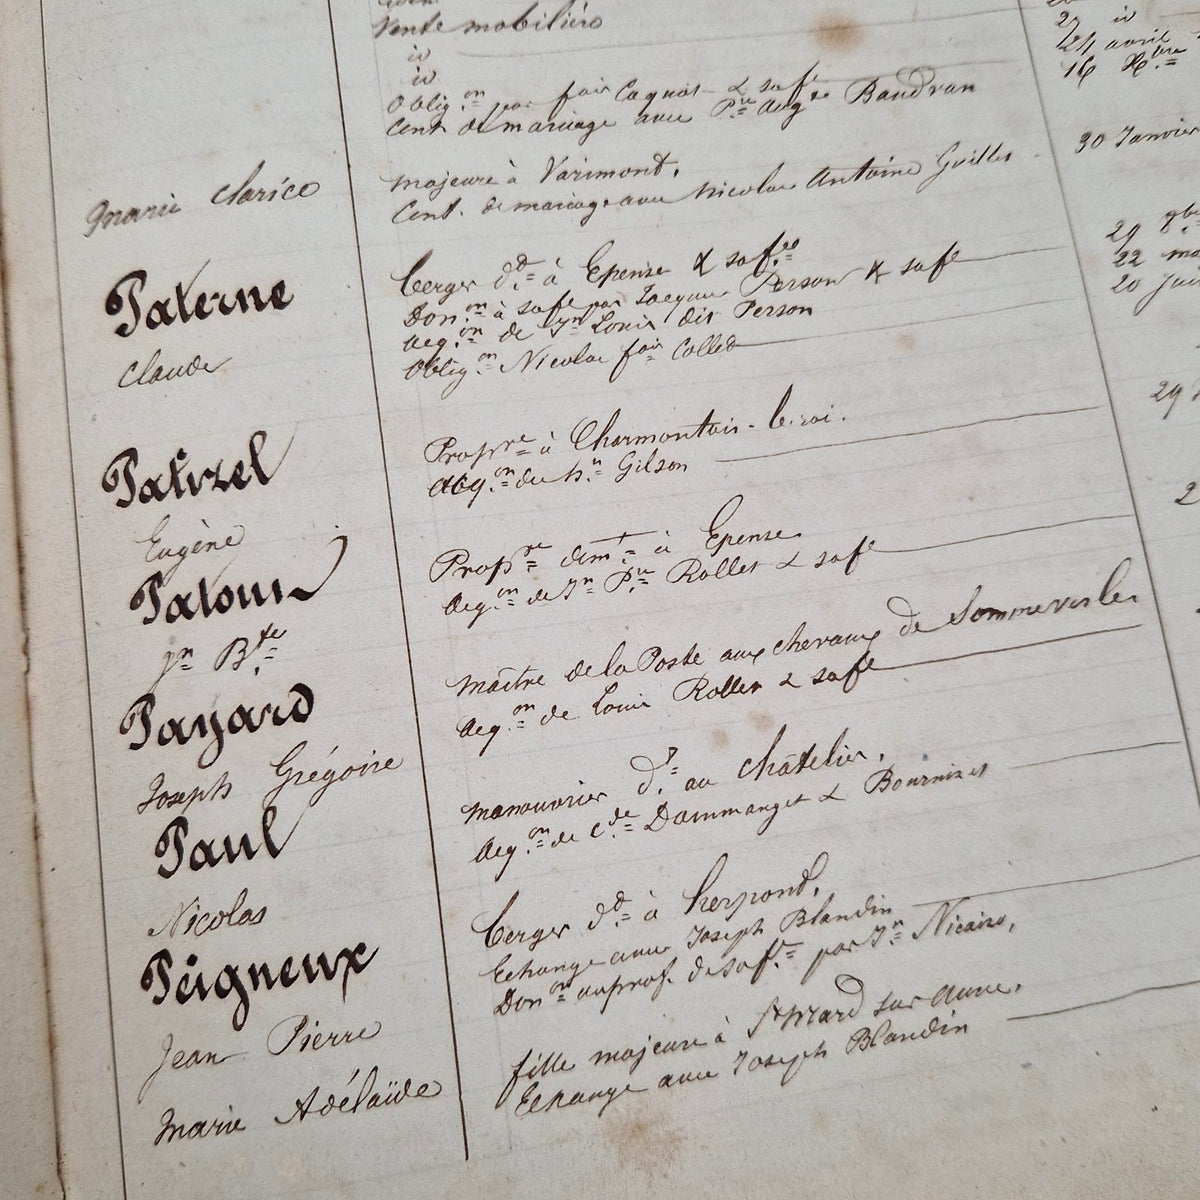 Vente mobilière
id
id
Oblig.on par fois Cagnot & sa fe
Cont. de mariage avec P.re Aug.te Baudran
27 id
24 avril
16 Xbre
Marie Clarice
majeure à Varimont,
Cont. de mariage avec Nicolas Antoine Guillet
30 Janvier
Paterne
Claude
berger d.t à Epense & sa fe
Don.on à sa fe par Jacques Person & sa fe
Acq.on de Jn Louis dit Person
Oblig.on Nicolas fois Collet
29 7bre
22
20
Patizel
Eugène
Propre à Charmontois-le-roi.
Acq.on du Sr Gilson
29
Patoux
Jn B.te
Propre demt à Epense.
Acq.on de Jn P.re Rollet & sa fe
2
Payard
Joseph Grégoire
maître de la Poste aux chevaux de Sommevesle.
Acq.on de Louis Rollet & sa fe
Paul
Nicolas
manouvrier d.t au châtelier,
Acq.on de C.de Dommanget & Bournizet
Peigneux
Jean Pierre
berger d.t à herpont,
Echange avec Joseph Blandin
Don.on au prof. de sa fe par Jn Nicaise,
Marie Adélaïde
fille majeure à St Mard sur auve,
Echange avec Joseph Blandin